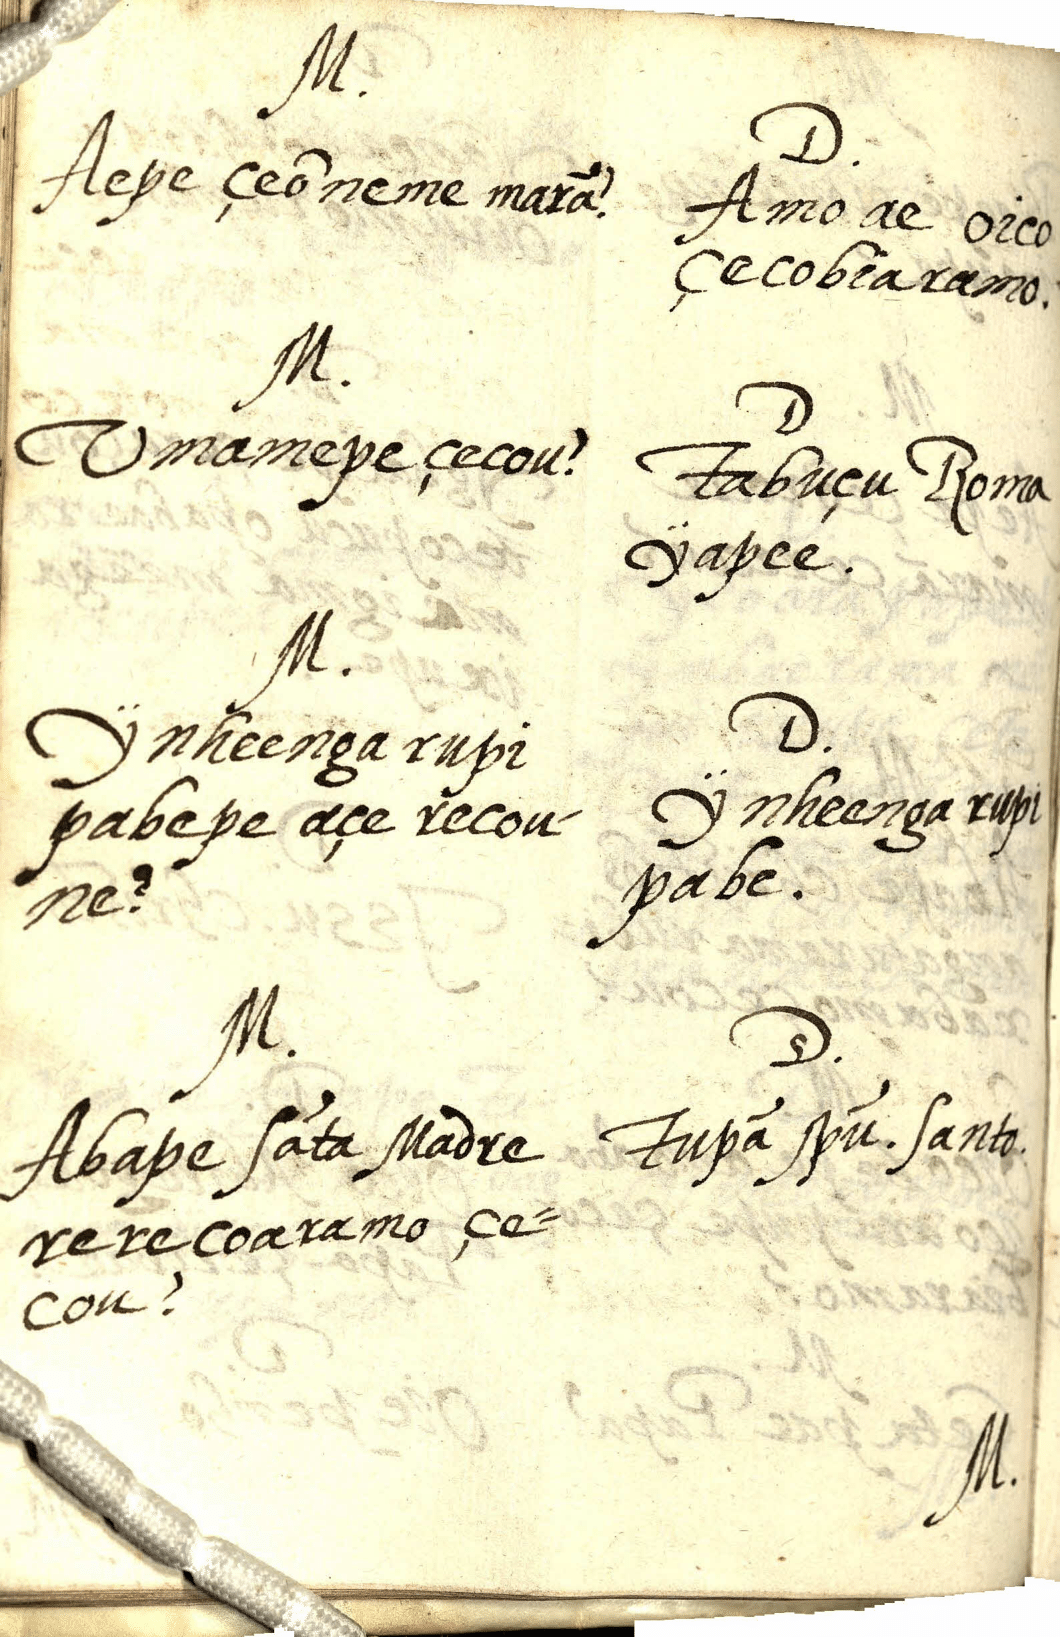 M.
Aepe çeõ neme marã?
D.
Amo ae oico
çecobiaramo.
M.
Vmamepe çecou?
D
Tabuçu Roma
ÿapee.
M.
Ÿ nheenga rupi
pabepe açe recou-
ne?
D.
Ÿ nheenga rupi
pabe.
M.
Abape sãta Madre
rerecoaramo çe=
cou?
D.
Tupã spũ. santo.
M.